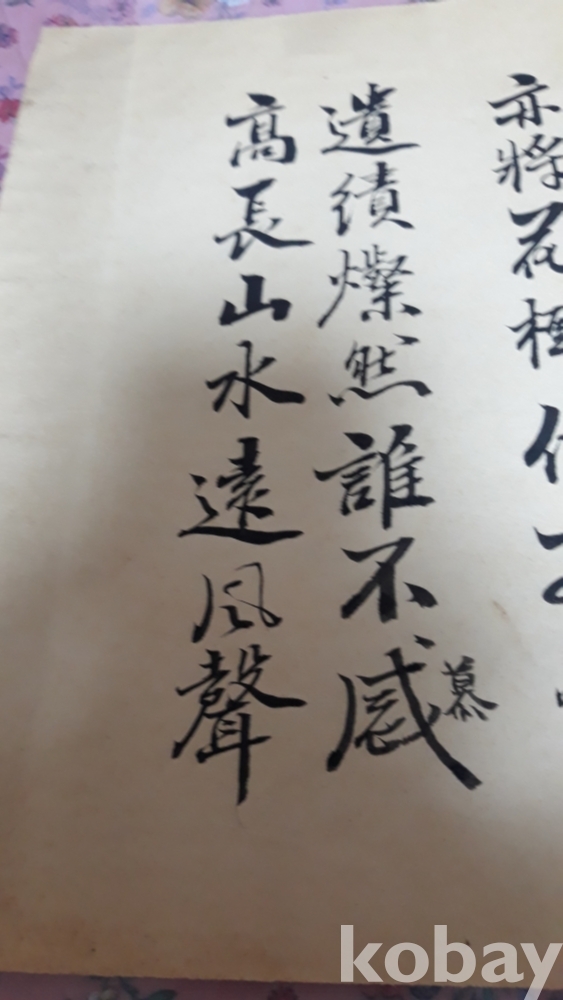 亦將花樹
遺績燦然誰不感慕
高長山水遠風聲
kobay